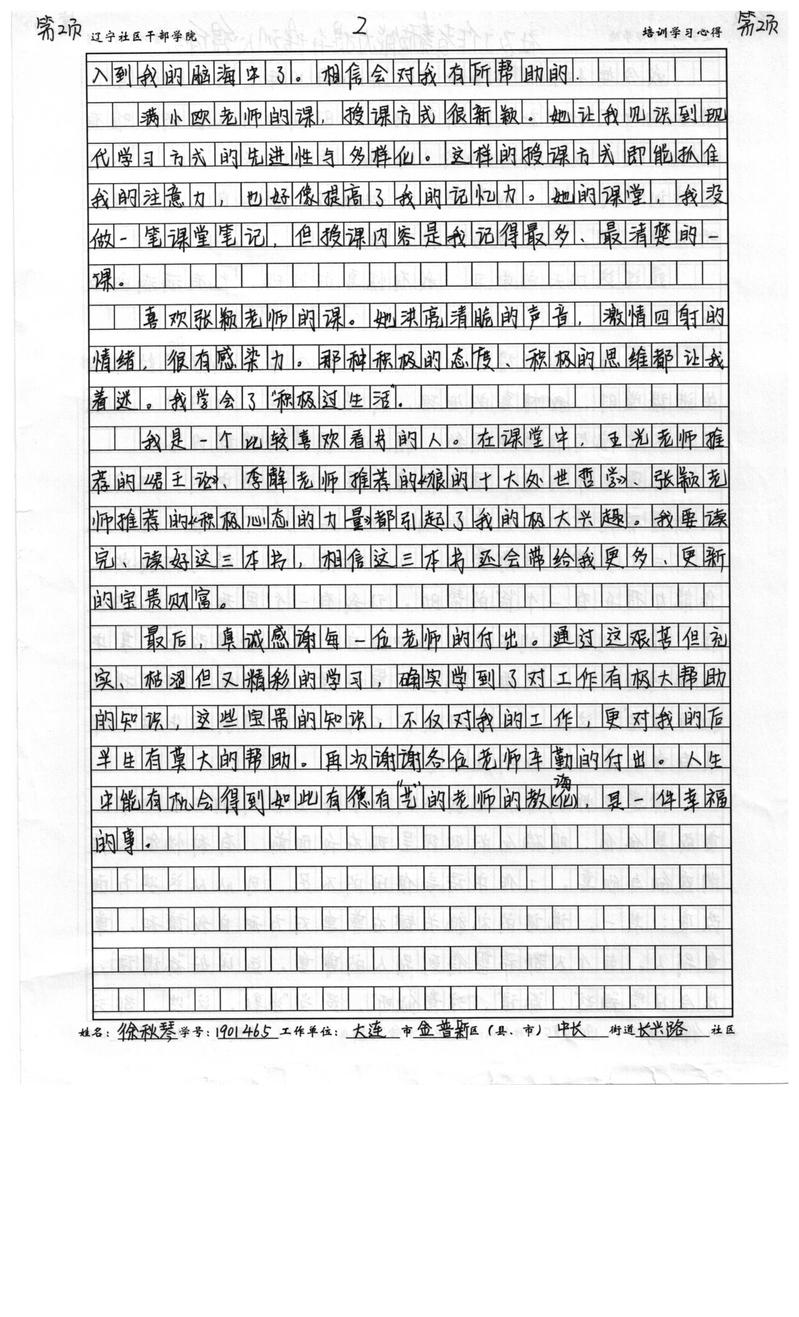 第2页 辽宁社区干部学院 2 培训学习心得 第2页
入到我的脑海中了。相信会对我有所帮助的.
满小欧老师的课，授课方式很新颖。她让我见识到现
代学习方式的先进性与多样化。这样的授课方式即能抓住
我的注意力，也好像提高了我的记忆力。她的课堂，我没
做一笔课堂笔记，但授课内容是我记得最多、最清楚的一
课。
喜欢张颖老师的课。她洪亮清脆的声音，激情四射的
情绪，很有感染力。那种积极的态度、积极的思维都让我
着迷。我学会了“积极过生活”.
我是一个比较喜欢看书的人。在课堂中，王光老师推
荐的《君王论》、李静老师推荐的《狼的十大处世哲学》、张颖老
师推荐的《积极心态的力量》都引起了我的极大兴趣。我要读
完、读好这三本书，相信这三本书还会带给我更多、更新
的宝贵财富。
最后，真诚感谢每一位老师的付出。通过这艰苦但充
实、枯涩但又精彩的学习，确实学到了对工作有极大帮助
的知识，这些宝贵的知识，不仅对我的工作，更对我的后
半生有莫大的帮助。再次谢谢各位老师辛勤的付出。人生
中能有机会得到如此有德有“艺”的老师的教诲(化)，真一件幸福
的事。
姓名：徐秋琴 学号：1901465 工作单位：大连 市 金普新 区（县、市） 中长 街道 长兴路 社区